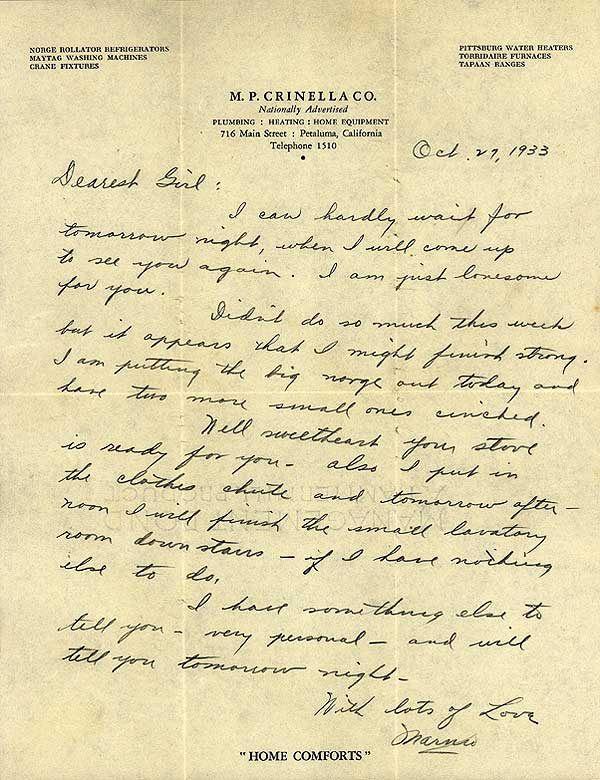 NORGE ROLLATOR REFRIGERATORS
MAYTAG WASHING MACHINES
CRANE FIXTURES
PITTSBURG WATER HEATERS
TORRIDAIRE FURNACES
TAPAAN RANGES
M. P. CRINELLA CO.
Nationally Advertised
PLUMBING : HEATING : HOME EQUIPMENT
716 Main Street : Petaluma, California
Telephone 1510
Oct. 27, 1933
Dearest Girl:
I can hardly wait for
tomorrow night, when I will come up
to see you again. I am just lonesome
for you.
Didn't do so much this week
but it appears that I might finish strong.
I am putting the big norge out today and
have two more small ones cinched.
Well sweetheart your stove
is ready for you - also I put in
the clothes chute and tomorrow after-
noon I will finish the small lavatory
room down stairs - if I have nothing
else to do.
I have something else to
tell you - very personal - and will
tell you tomorrow night -
With lots of Love
"HOME COMFORTS"